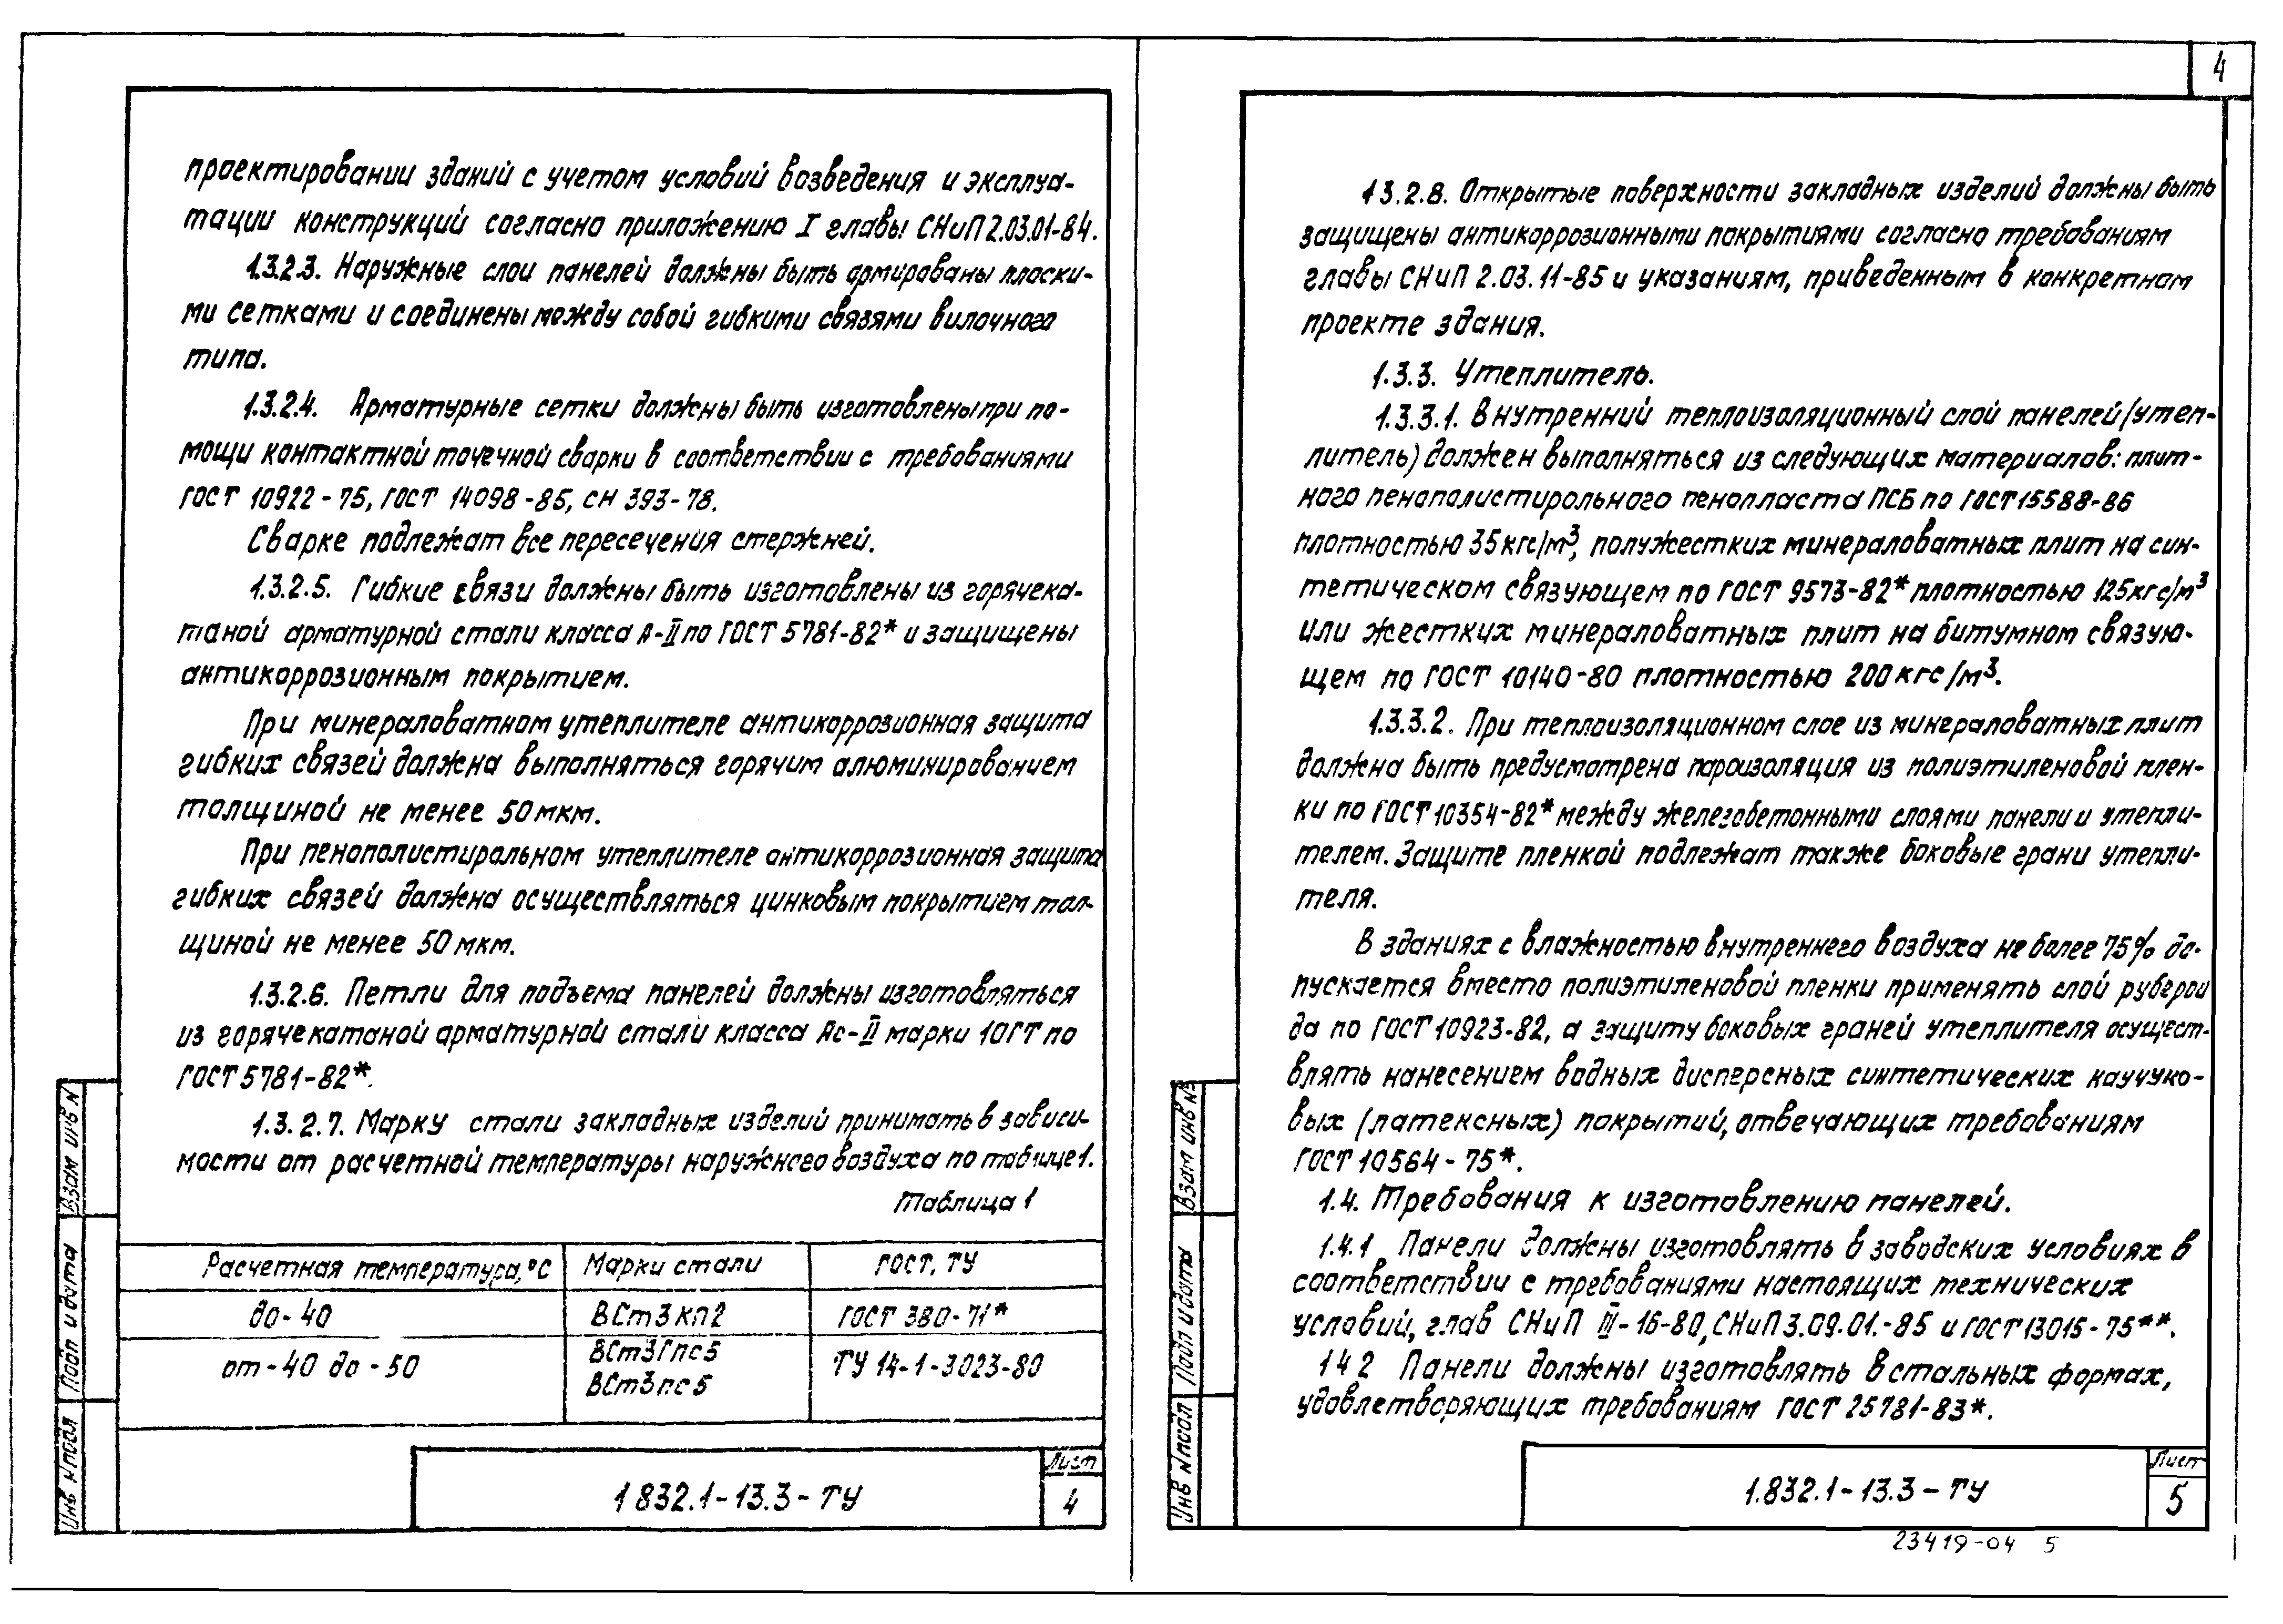 4
проектировании зданий с учетом условий возведения и эксплуа-
тации конструкций согласно приложению I главы СНиП 2.03.01-84.
1.3.2.3. Наружные слои панелей должны быть армированы плоски-
ми сетками и соединены между собой гибкими связями вилочного
типа.
1.3.2.4. Арматурные сетки должны быть изготовлены при по-
мощи контактной точечной сварки в соответствии с требованиями
ГОСТ 10922-75, ГОСТ 14098-85, СН 393-78.
Сварке подлежат все пересечения стержней.
1.3.2.5. Гибкие связи должны быть изготовлены из горячека-
таной арматурной стали класса А-II по ГОСТ 5781-82* и защищены
антикоррозионным покрытием.
При минераловатном утеплителе антикоррозионная защита
гибких связей должна выполняться горячим алюминированием
толщиной не менее 50 мкм.
При пенополистиральном утеплителе антикоррозионная защита
гибких связей должна осуществляться цинковым покрытием тол-
щиной не менее 50 мкм.
1.3.2.6. Петли для подъема панелей должны изготовляться
из горячекатаной арматурной стали класса Ас-II марки 10ГТ по
ГОСТ 5781-82*.
1.3.2.7. Марку стали закладных изделий принимать в зависи-
мости от расчетной температуры наружного воздуха по таблице 1.
Таблица 1
Расчетная температура, °С Марки стали ГОСТ, ТУ
до -40 ВСт3кп2 ГОСТ 380-71*
от -40 до -50 ВСт3Гпс5 ТУ 14-1-3023-80
ВСт3пс5
Взам инв N
Подп и дата
Инв N подл
1 832.1-13.3-ТУ
Лист
4
1 3.2.8. Открытые поверхности закладных изделий должны быть
защищены антикоррозионными покрытиями согласно требованиям
главы СНиП 2.03.11-85 и указаниям, приведенным в конкретном
проекте здания.
1.3.3. Утеплитель.
1.3.3.1. Внутренний теплоизоляционный слой панелей (утеп-
литель) должен выполняться из следующих материалов: плит-
ного пенополистирольного пенопласта ПСБ по ГОСТ 15588-86
плотностью 35 кгс/м³, полужестких минераловатных плит на син-
тетическом связующем по ГОСТ 9573-82* плотностью 125 кгс/м³
или жестких минераловатных плит на битумном связую-
щем по ГОСТ 10140-80 плотностью 200 кгс/м³.
1.3.3.2. При теплоизоляционном слое из минераловатных плит
должна быть предусмотрена пароизоляция из полиэтиленовой плен-
ки по ГОСТ 10354-82* между железобетонными слоями панели и утепли-
телем. Защите пленкой подлежат также боковые грани утепли-
теля.
В зданиях с влажностью внутреннего воздуха не более 75% до-
пускается вместо полиэтиленовой пленки применять слой руберои
да по ГОСТ 10923-82, а защиту боковых граней утеплителя осущест-
влять нанесением водных дисперсных синтетических каучуко-
вых (латексных) покрытий, отвечающих требованиям
ГОСТ 10564-75*.
1.4. Требования к изготовлению панелей.
1.4.1 Панели должны изготовлять в заводских условиях в
соответствии с требованиями настоящих технических
условий, глав СНиП III-16-80, СНиП 3.09.01.-85 и ГОСТ 13015-75**.
1 4 2 Панели должны изготовлять в стальных формах,
удовлетворяющих требованиям ГОСТ 25781-83*.
Взам инв N
Подп и дата
Инв N подл
1.832.1-13.3-ТУ
Лист
5
23419-04 5